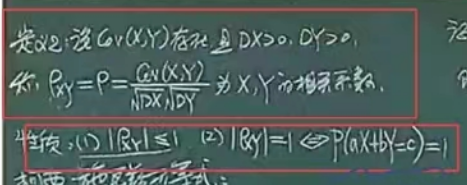 定义2:设Cov(X,Y)存在且DX>0,DY>0,
称ρxy=ρ=Cov(X,Y)/√DX√DY为X,Y的相关系数.
性质:(1)|ρxy|≤1 (2)|ρxy|=1⇔P(aX+bY=c)=1
柯西-施瓦兹不等式: